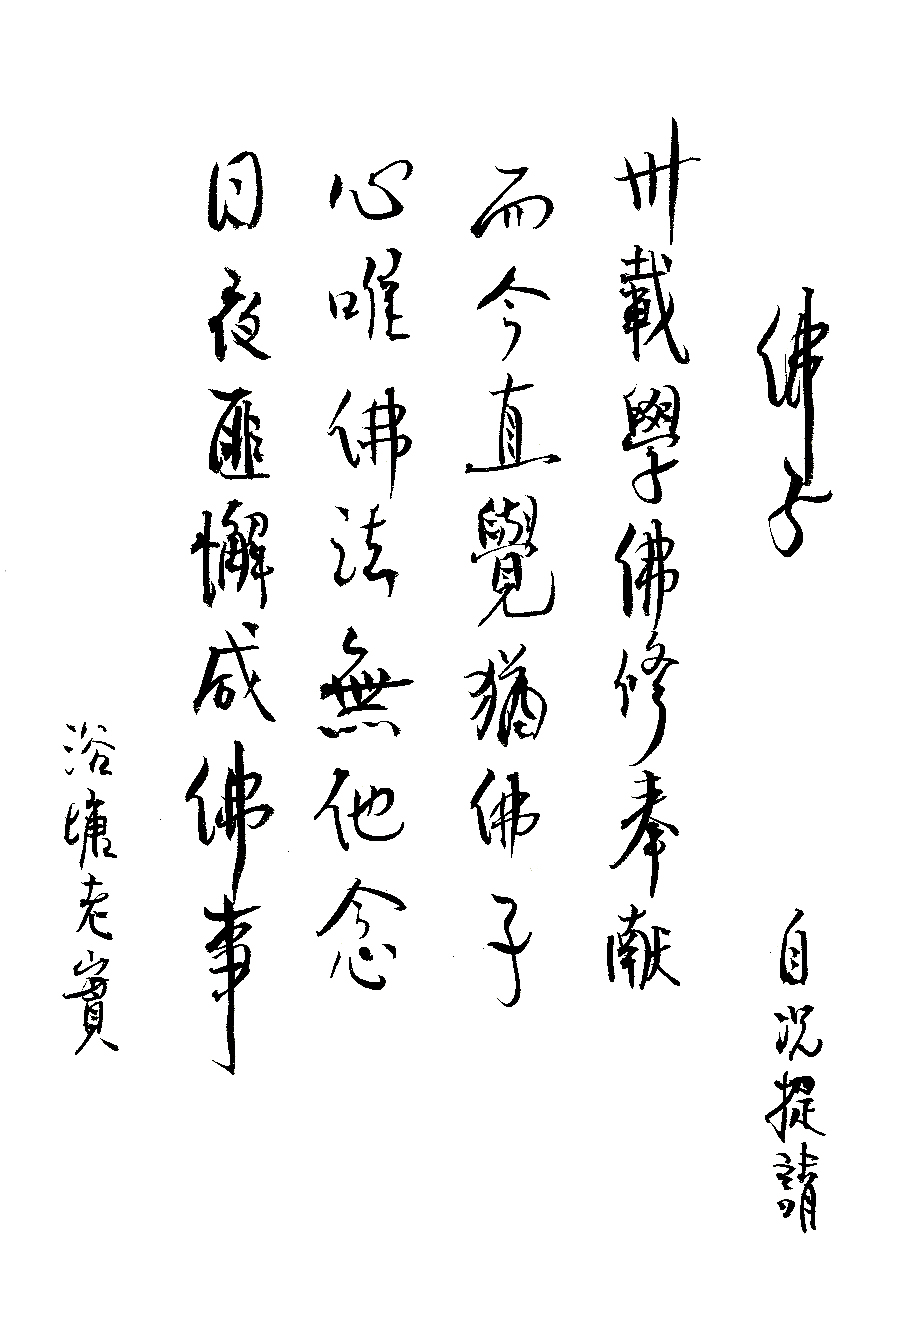 佛子
自況提請
卅載學佛修奉献
而今直覺猶佛子
心唯佛法無他念
日夜匪懈成佛事
浴墉老實